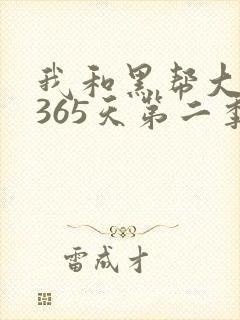 我和黑帮大
365天第二季
雷成才